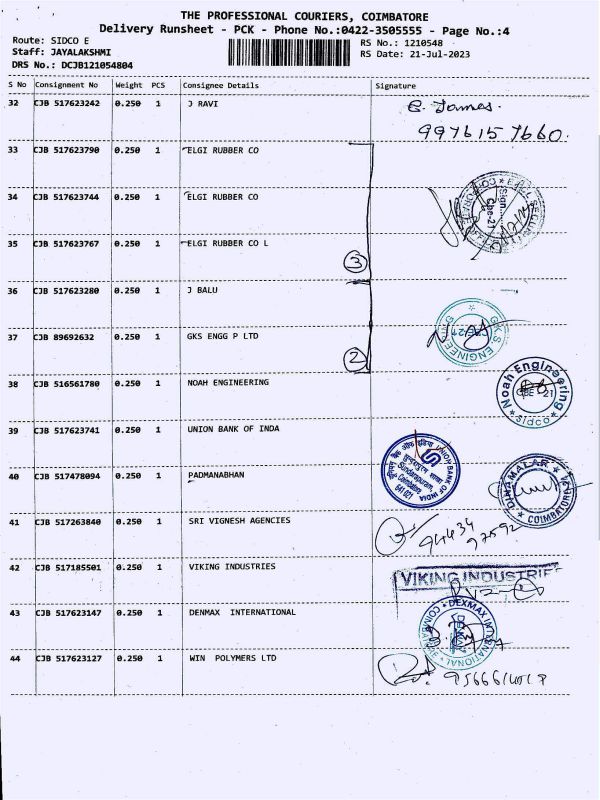 THE PROFESSIONAL COURIERS, COIMBATORE
Delivery Runsheet - PCK - Phone No.:0422-3505555 - Page No.:4
Route: SIDCO E
Staff: JAYALAKSHMI
DRS No.: DCJB121054804
RS No.: 1210548
RS Date: 21-Jul-2023
S No Consignment No Weight PCS Consignee Details Signature
32 CJB 517623242 0.250 1 J RAVI
9976157660.
33 CJB 517623790 0.250 1 ELGI RUBBER CO
34 CJB 517623744 0.250 1 ELGI RUBBER CO
35 CJB 517623767 0.250 1 ELGI RUBBER CO L
3
36 CJB 517623280 0.250 1 J BALU
37 CJB 89692632 0.250 1 GKS ENGG P LTD
2
38 CJB 516561780 0.250 1 NOAH ENGINEERING
Noah Engineering
CBE 21
Sidco
39 CJB 517623741 0.250 1 UNION BANK OF INDA
UNION BANK OF INDIA
Sundarapuram,
Coimbatore
641 021
40 CJB 517478094 0.250 1 PADMANABHAN
DINAMALAR
COIMBATORE
41 CJB 517263840 0.250 1 SRI VIGNESH AGENCIES
94434
97592
42 CJB 517185501 0.250 1 VIKING INDUSTRIES
VIKING INDUSTRIE
43 CJB 517623147 0.250 1 DENMAX INTERNATIONAL
44 CJB 517623127 0.250 1 WIN POLYMERS LTD